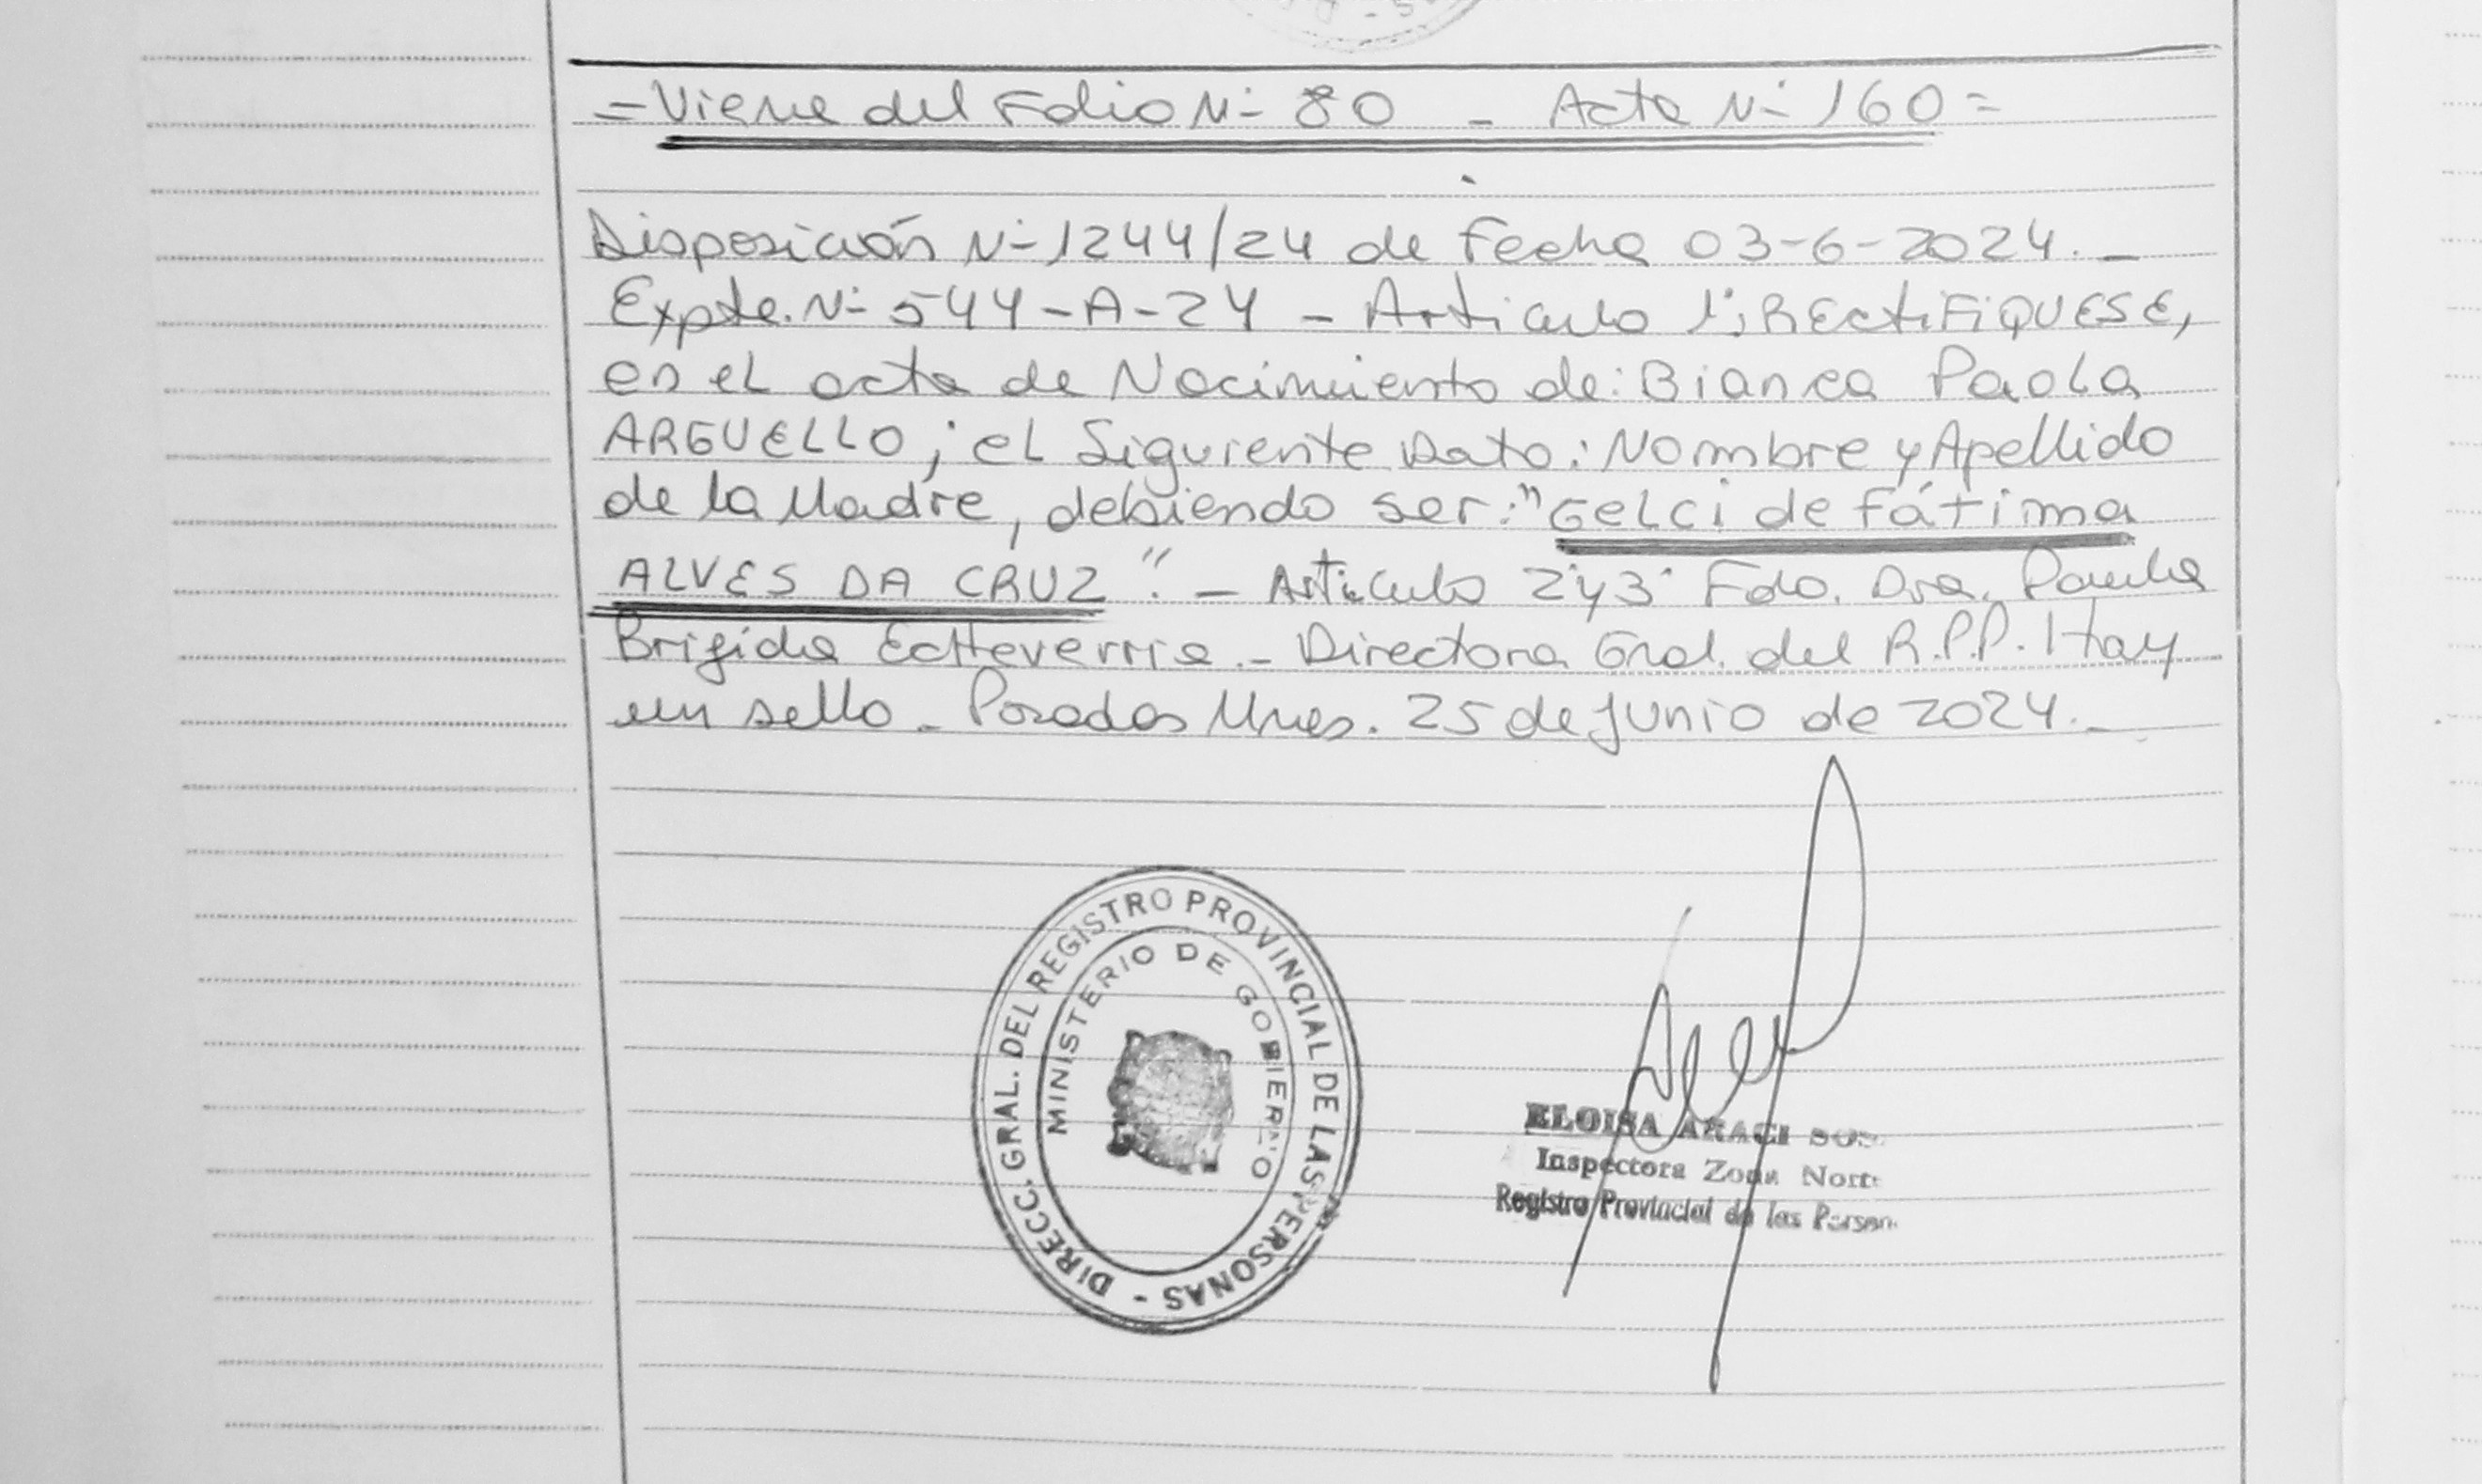 = Viene del Folio Nº 80 - Acta Nº 160 =
Disposición Nº 1244/24 de Fecha 03-6-2024. _
Expte. Nº 544-A-24 - Articulo 1º; RECtiFiQUESE,
en el acta de Nacimiento de: Bianca Paola
ARGUELLO; el Siguiente Dato: Nombre y Apellido
de la Madre, debiendo ser: "Gelci de Fátima
ALVES DA CRUZ". - Articulo 2º y 3º Fdo. Dra. Paula
Brigida Echeverria. - Directora Gral. del R.P.P. Hay
un sello - Posadas Mnes. 25 de Junio de 2024. _
DIRECC. GRAL. DEL REGISTRO PROVINCIAL DE LAS PERSONAS -
MINISTERIO DE GOBIERNO
ELOISA ARACI
Inspectora Zona Norte
Registro Provincial de las Person